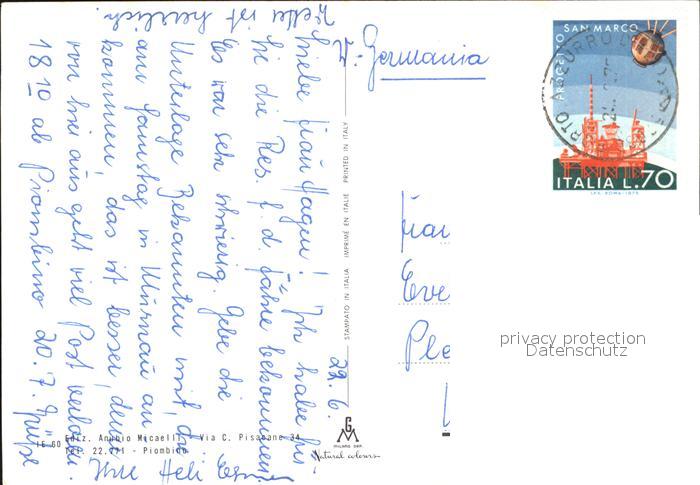 Liebe Frau Hagen! Ich habe bis-
hi die Res. f. d. Fähre bekommen.
Es war sehr schwierig. Gebe die
Unterlage Bekannten mit, die
am Samstag in Murnau an-
kommen, das ist besser, denn
von hier aus geht viel Post verloren.
18 10 ab Piombino 20.7. Grüße
Ihre Heli
Wetter ist herrlich.
22.6.
Germania
Frau
Eve
Ple
PROGETTO SAN MARCO
ITALIA L.70
I.P.S. ROMA-1975
STAMPATO IN ITALIA IMPRIMÉ EN ITALIE PRINTED IN ITALY
MILANO
Natural colours
Ediz. Anubio Micaelli, Via C. Pisacane 34
Tel. 22.771 - Piombino
IE 60
privacy protection
Datenschutz